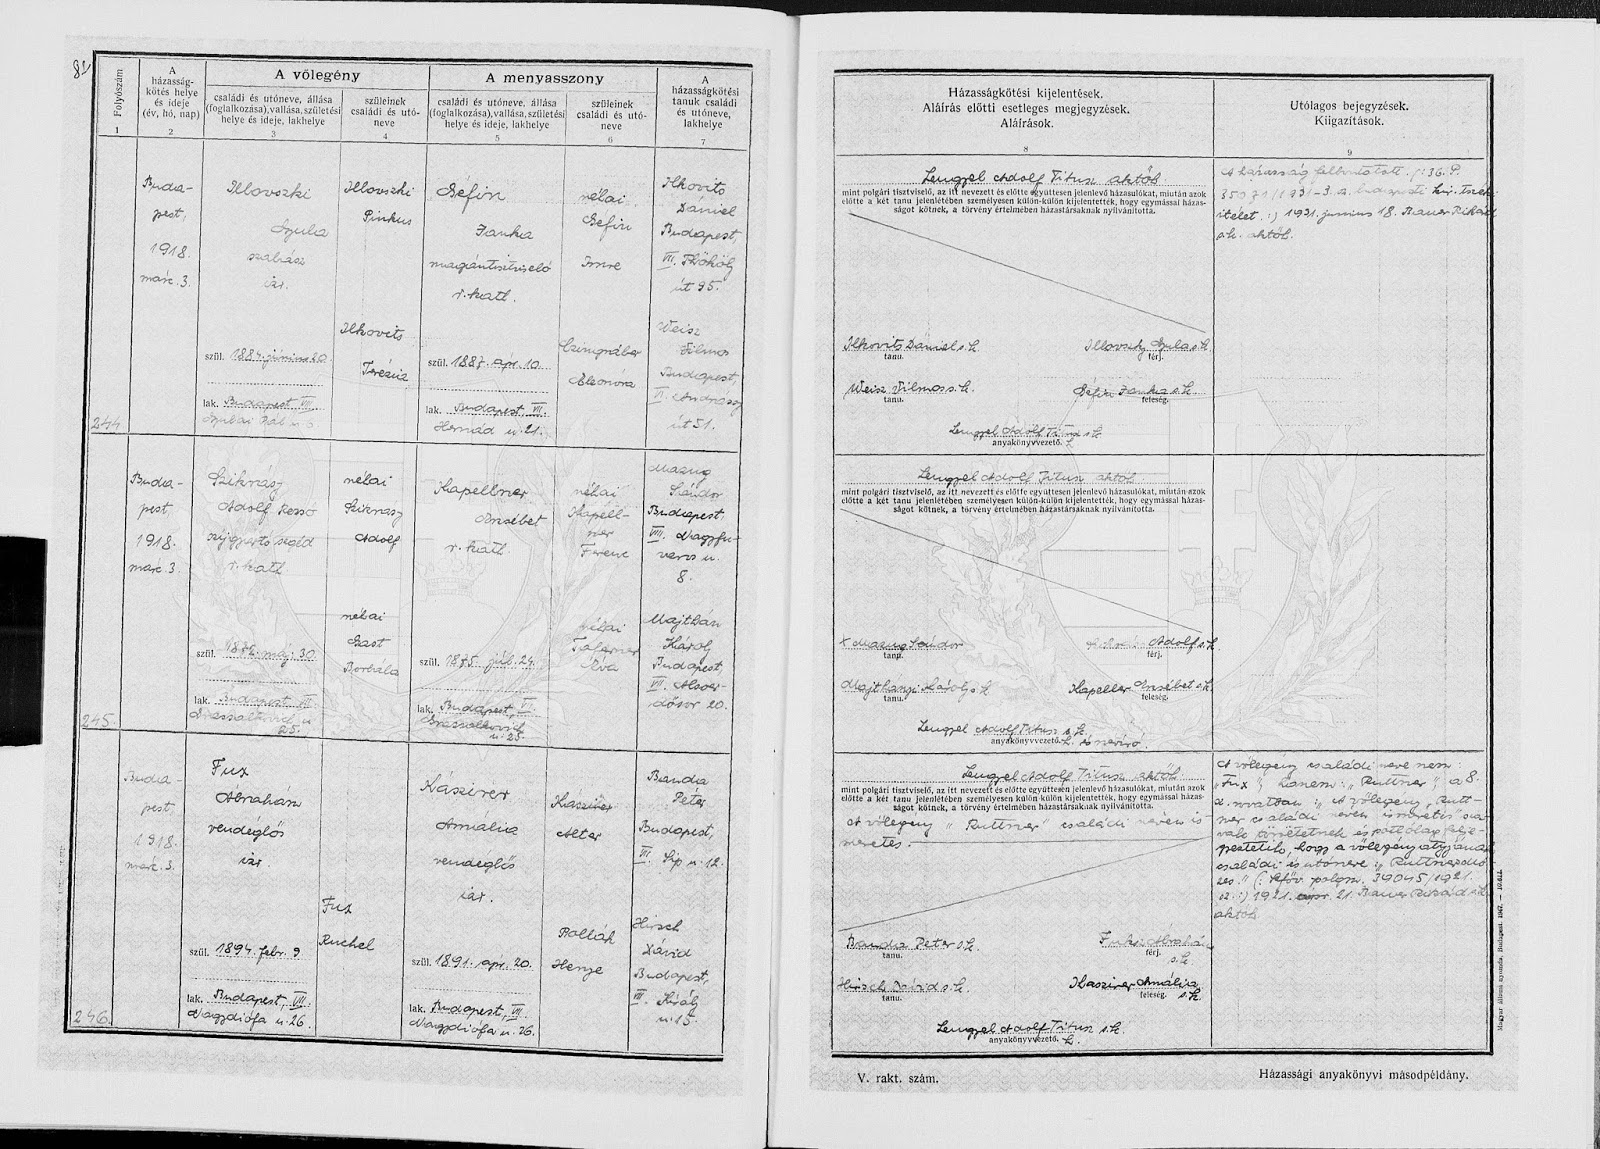 82
Folyószám
1
A
házasság-
kötés helye
és ideje
(év, hó, nap)
2
A vőlegény
családi és utóneve, állása
(foglalkozása), vallása, születési
helye és ideje, lakhelye
3
szüleinek
családi és utó-
neve
4
A menyasszony
családi és utóneve, állása
(foglalkozása), vallása, születési
helye és ideje, lakhelye
5
szüleinek
családi és utó-
neve
6
A
házasságkötési
tanuk családi
és utóneve,
lakhelye
7
Házasságkötési kijelentések.
Aláírás előtti esetleges megjegyzések.
Aláírások.
8
Utólagos bejegyzések.
Kiigazítások.
9
244
Buda-
pest,
1918.
márc. 3.
Illovszki
Gyula
izr.
szül. 1884. június 20
lak. Budapest VII
Illovszki
Pinkus
Ilkovits
Terézia
Séfin
Janka
magántisztviselő
r. kath.
szül. 1887. ápr. 10
lak. Budapest, VII.
Hernád u. 21.
néhai
Séfin
Imre
Eleonóra
Ilkovits
Dániel
Budapest,
VII. Thököly
út 95.
Weisz
Vilmos
Budapest,
VI. Andrássy
út 51.
Lengyel Adolf Titusz aktób
mint polgári tisztviselő, az itt nevezett és előtte együttesen jelenlevő házasulókat, miután azok
előtte a két tanu jelenlétében személyesen külön-külön kijelentették, hogy egymással házas-
ságot kötnek, a törvény értelmében házastársaknak nyilvánította.
Ilkovits Dániel s.k.
tanu.
Illovszky Gyula s.k.
férj.
Weisz Vilmos s.k.
tanu.
Séfin Janka s.k.
feleség.
Lengyel Adolf Titusz s.k.
anyakönyvvezető. h.
A házasság felbontatott
1921. június 18. Bauer Rikárd
s.k. aktób.
245.
Buda-
pest
1918.
márc. 3.
Sziknász
Adolf Dezső
r. kath
szül. máj. 30
lak. Budapest VII
25.
néhai
Sziknász
Adolf
néhai
Borbála
Kapellner
Erzsébet
r. kath
szül. 1875. júl. 24.
lak. Budapest, VII.
u. 25.
néhai
Kapell-
ner
Ferenc
néhai
Éva
Mazug
Sándor
Budapest,
VIII. Nagyfu-
varos u.
8.
Majthán
Károly
Budapest,
VII. Alsóer-
dősor 20.
Lengyel Adolf Titusz aktób
mint polgári tisztviselő, az itt nevezett és előtte együttesen jelenlevő házasulókat, miután azok
előtte a két tanu jelenlétében személyesen külön-külön kijelentették, hogy egymással házas-
ságot kötnek, a törvény értelmében házastársaknak nyilvánította.
x Mazug Sándor
tanu.
Adolf s.k.
férj.
Majthényi Károly s.k.
tanu.
Kapeller Erzsébet s.k.
feleség.
Lengyel Adolf Titusz s.k.
anyakönyvvezető. h. s névíró.
246.
Buda-
pest,
1918.
márc. 3.
Fux
Abrahám
vendéglős
izr.
szül. 1894. febr. 9
lak. Budapest, VII.
Nagydiófa u. 26.
Fux
Ruchel
Kászirer
Amália
vendéglős
izr.
szül. 1891. ápr. 20.
lak. Budapest, VII
Nagydiófa u. 26.
Kaszirer
Alter
Pollák
Henye
Banda
Péter
Budapest,
VII. Síp u. 12.
Hirsch
Dávid
Budapest,
VI. Király
u. 15.
Lengyel Adolf Titusz aktób
mint polgári tisztviselő, az itt nevezett és előtte együttesen jelenlevő házasulókat, miután azok
előtte a két tanu jelenlétében személyesen külön-külön kijelentették, hogy egymással házas-
ságot kötnek, a törvény értelmében házastársaknak nyilvánította.
A vőlegény „Ruttner" családi néven is-
meretes.
Banda Péter s.k.
tanu.
Fuksz Abrahám
férj.
s.k.
Hirsch Dávid s.k.
tanu.
Kaszirer Amália
feleség. s.k.
Lengyel Adolf Titusz s.k.
anyakönyvvezető. h.
A vőlegény családi neve nem:
„Fux", hanem: „Ruttner", a 8.
rovatban: „A vőlegény Rutt-
ner családi néven ismeretes" sza-
vak és pótlólag felje-
geztetik, hogy a vőlegény atyjának
családi és utóneve: „Ruttner Mó-
zes." (: 39045/1921.
sz. :) 1921. ápr. 21. Bauer Rikárd s.k.
aktób
Magyar állami nyomda. Budapest, 1947. — 10.677.
V. rakt. szám.
Házassági anyakönyvi másodpéldány.